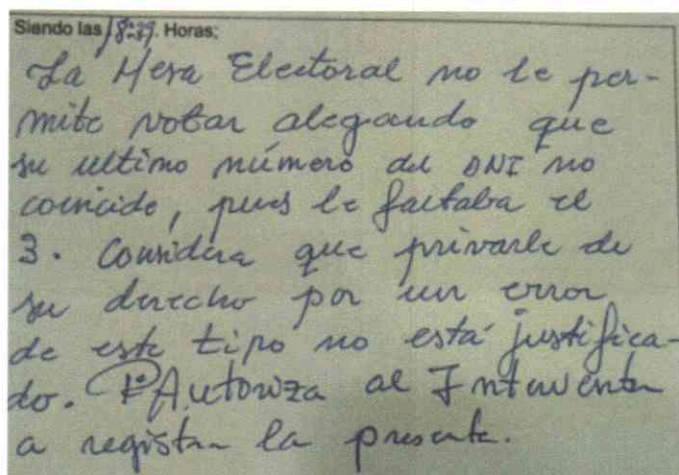 Siendo las 18:39. Horas;
La Mesa Electoral no le per-
mite votar alegando que
su ultimo número del DNI no
coincide, pues le faltaba el
3. Considera que privarle de
su derecho por un error
de este tipo no está justifica-
do. Autoriza al Interventor
a registrar la presente.